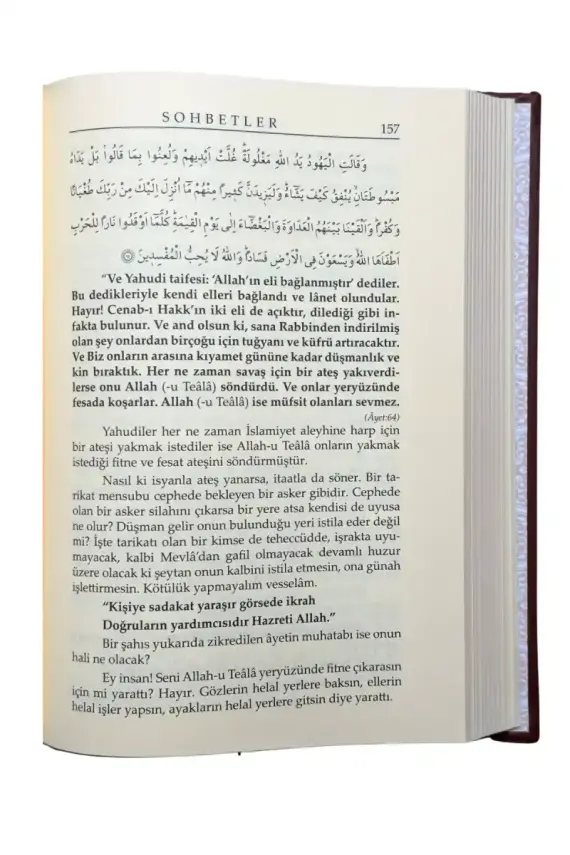 SOHBETLER
157
وَقَالَتِ الْيَهُودُ يَدُ اللّٰهِ مَغْلُولَةٌ غُلَّتْ اَيْدِيهِمْ وَلُعِنُوا بِمَا قَالُوا بَلْ يَدَاهُ
مَبْسُوطَتَانِ يُنْفِقُ كَيْفَ يَشَٓاءُ وَلَيَزِيدَنَّ كَثِيرًا مِنْهُمْ مَٓا اُنْزِلَ اِلَيْكَ مِنْ رَبِّكَ طُغْيَانًا
وَكُفْرًا وَاَلْقَيْنَا بَيْنَهُمُ الْعَدَاوَةَ وَالْبَغْضَٓاءَ اِلٰى يَوْمِ الْقِيٰمَةِ كُلَّمَٓا اَوْقَدُوا نَارًا لِلْحَرْبِ
اَطْفَاَهَا اللّٰهُ وَيَسْعَوْنَ فِى الْاَرْضِ فَسَادًا وَاللّٰهُ لَا يُحِبُّ الْمُفْسِدِينَ
“Ve Yahudi taifesi: ‘Allah’ın eli bağlanmıştır’ dediler.
Bu dedikleriyle kendi elleri bağlandı ve lânet olundular.
Hayır! Cenab-ı Hakk’ın iki eli de açıktır, dilediği gibi in-
fakta bulunur. Ve and olsun ki, sana Rabbinden indirilmiş
olan şey onlardan birçoğu için tuğyanı ve küfrü artıracaktır.
Ve Biz onların arasına kıyamet gününe kadar düşmanlık ve
kin bıraktık. Her ne zaman savaş için bir ateş yakıverdi-
lerse onu Allah (-u Teâlâ) söndürdü. Ve onlar yeryüzünde
fesada koşarlar. Allah (-u Teâlâ) ise müfsit olanları sevmez.
(Âyet:64)
Yahudiler her ne zaman İslamiyet aleyhine harp için
bir ateşi yakmak istediler ise Allah-u Teâlâ onların yakmak
istediği fitne ve fesat ateşini söndürmüştür.
Nasıl ki isyanla ateş yanarsa, itaatla da söner. Bir ta-
rikat mensubu cephede bekleyen bir asker gibidir. Cephede
olan bir asker silahını çıkarsa bir yere atsa kendisi de uyusa
ne olur? Düşman gelir onun bulunduğu yeri istila eder değil
mi? İşte tarikatı olan bir kimse de teheccüdde, işrakta uyu-
mayacak, kalbi Mevlâ’dan gafil olmayacak devamlı huzur
üzere olacak ki şeytan onun kalbini istila etmesin, ona günah
işlettirmesin. Kötülük yapmayalım vesselâm.
“Kişiye sadakat yaraşır görsede ikrah
Doğruların yardımcısıdır Hazreti Allah.”
Bir şahıs yukarıda zikredilen âyetin muhatabı ise onun
hali ne olacak?
Ey insan! Seni Allah-u Teâlâ yeryüzünde fitne çıkarasın
için mi yarattı? Hayır. Gözlerin helal yerlere baksın, ellerin
helal işler yapsın, ayakların helal yerlere gitsin diye yarattı.